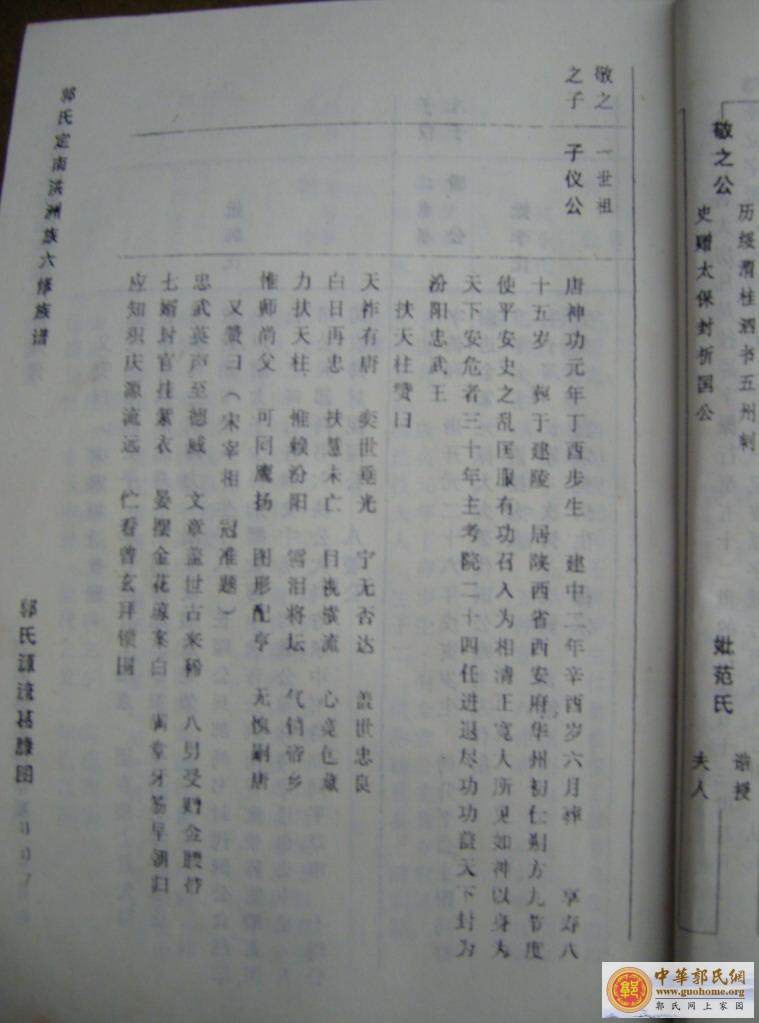 历绥渭桂酒书五州刺
敬之公
史赠太保封祈国公
妣范氏
诰授
夫人
敬之 一世祖
之子 子仪公
唐神功元年丁酉步生 建中二年辛酉岁六月葬 享寿八
十五岁 葬于建陵 居陕西省西安府华州初仕朔方九节度
使平安史之乱匡服有功召入为相清正宽人所见如神以身为
天下安危者三十年主考院二十四任进退尽功功盖天下封为
汾阳忠武王
扶天柱赞曰
天祚有唐 奕世垂光 宁无否达 盖世忠良
白日再忠 扶 未亡 日视横流 心 色藏
力扶天柱 惟赖汾阳 雪泪将坛 气销帝乡
惟师尚父 可同鹰扬 图形配享 无愧嗣唐
又赞曰(宋宰相 冠准题)
忠武英声至德威 文章盖世古来稀 八男受赠金腰带
七婿封官挂紫衣 晏摆金花 案白 满堂牙笏早朝归
应知积庆源流远 伫看曾玄拜锁围
郭氏定南洪洲族六修族谱
郭氏源流基 图
中華郭氏網
www.guohome.org
郭氏网上家园